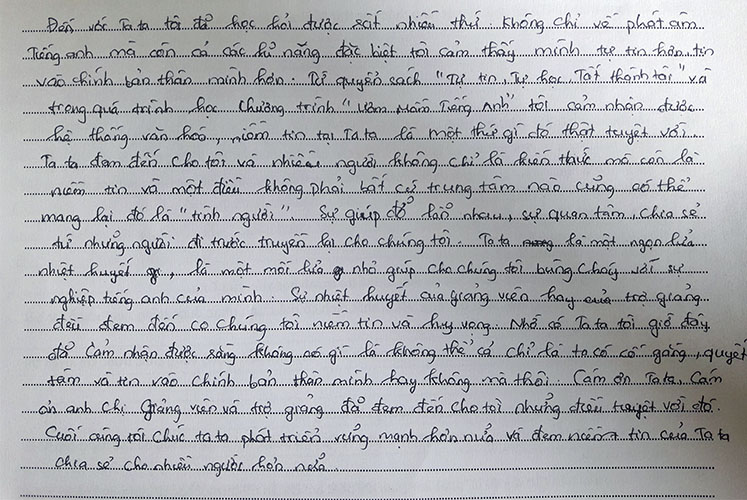 Đến với Tata tôi đã học hỏi được rất nhiều thứ không chỉ về phát âm
Tiếng anh mà còn cả các kĩ năng đặc biệt tôi cảm thấy mình tự tin hơn, tin
vào chính bản thân mình hơn. Từ quyển sách "Tự tin, Tự học, Tất thành tài" và
trong quá trình học chương trình "Ươm Mầm Tiếng Anh" tôi cảm nhận được
hệ thống văn hoá, niềm tin tại Tata là một thứ gì đó thật truyệt vời.
Tata đem đến cho tôi và nhiều người không chỉ là kiến thức mà còn là
niềm tin và một điều không phải bất cứ trung tâm nào cũng có thể
mang lại đó là "tình người". Sự giúp đỡ lẫn nhau, sự quan tâm, chia sẻ
từ những người đi trước truyền lại cho chúng tôi. Tata là một ngọn lửa
nhiệt huyết, là một mồi lửa nhỏ giúp cho chúng tôi bùng cháy với sự
nghiệp tiếng anh của mình. Sự nhiệt huyết của giảng viên hay của trợ giảng
đều đem đến co chúng tôi niềm tin và hy vọng. Nhờ có Tata tôi giờ đây
đã cảm nhận được rằng không có gì là không thể cả chỉ là ta có cố gắng, quyết
tâm và tin vào chính bản thân mình hay không mà thôi. Cảm ơn Tata, Cảm
ơn anh chị Giảng viên và trợ giảng đã đem đến cho tôi những điều truyệt vời đó.
Cuối cùng tôi chúc tata phát triển vững mạnh hơn nữa và đem niềm tin của Tata
chia sẻ cho nhiều người hơn nữa.